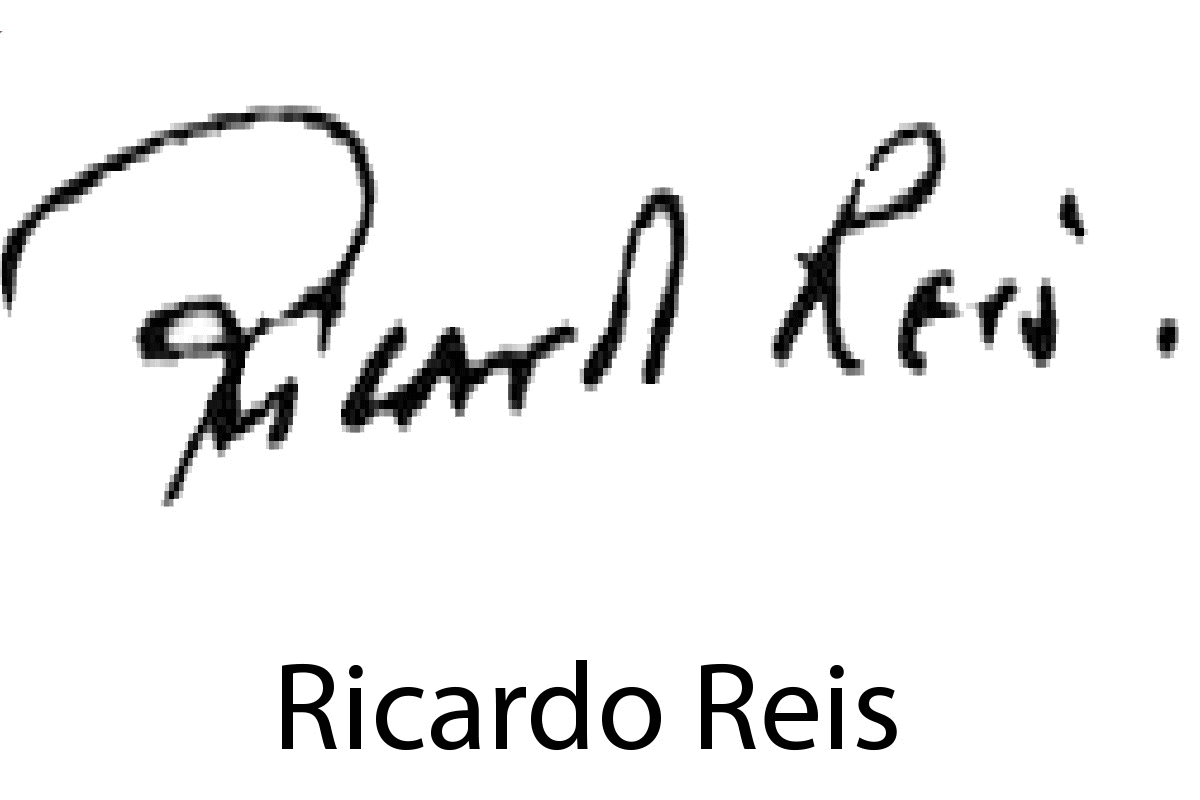 Ricardo Reis.
Ricardo Reis